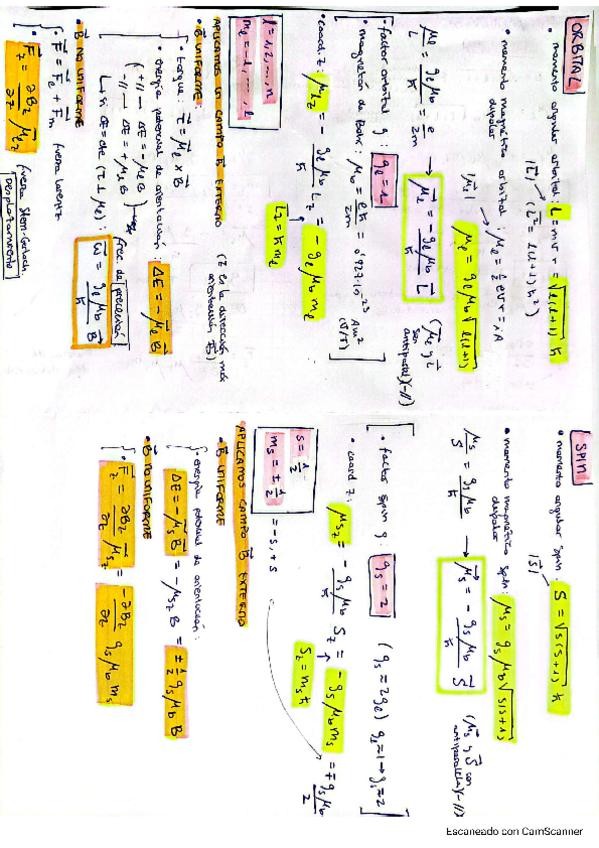 ORBITAL
• momento angular orbital: L = mvr = √l(l+1) ħ
|L⃗| (L² = l(l+1)ħ²)
• momento magnético orbital: μl = ½evr = iA
dipolar
|μl| μl = gl μb √l(l+1)
μl/L = gl μb/ħ = e/2m → μ⃗l = - gl μb/ħ L⃗ (μ⃗l y L⃗ son antiparalel) (-//)
• factor orbital g: gl = 1
• magnetón de Bohr: μb = eħ/2m = 0'927·10⁻²³ Am² (J/T)
• coord z: μlz = - gl μb/ħ Lz = - gl μb ml
Lz = ħ ml
l = 1, 2, ..., n
ml = -l, ..., l
APLICAMOS UN CAMPO B⃗ EXTERNO
• B⃗ UNIFORME:
• torque: τ⃗ = μ⃗l × B⃗
• energía potencial de orientación: ΔE = - μ⃗l B⃗
(+// — ΔE = - μl B)
(-// — ΔE = + μl B)
↳ si ΔE = cte (τ⃗ ⊥ μ⃗l): ω⃗ = gl μb/ħ B⃗
frec. de precesión
• B⃗ NO UNIFORME
• F⃗ = F⃗e + F⃗m fuerza Lorentz
• F⃗z = ∂Bz/∂z μ⃗lz fuerza Stern-Gerlach
Desplazamiento
SPIN
• momento angular spin: S = √s(s+1) ħ
|S⃗|
• momento magnético spin: μs = gs μb √s(s+1)
dipolar
μs/S = gs μb/ħ → μ⃗s = - gs μb/ħ S⃗ (μ⃗s y S⃗ son antiparalel) (-//)
• factor spin g: gs = 2 (gs = 2gl) gl = 1 → gs = 2
• coord z: μsz = - gs μb/ħ Sz = - gs μb ms = ∓ gs μb/2
Sz = ms ħ
s = 1/2
ms = ± 1/2 = -s, +s
APLICAMOS CAMPO B⃗ EXTERNO
• B⃗ UNIFORME
• energía potencial de orientación:
ΔE = - μ⃗s B⃗ = - μsz B = ± ½ gs μb B
• B⃗ NO UNIFORME
• F⃗z = ∂Bz/∂z μ⃗sz = -∂Bz/∂z gs μb ms
Escaneado con CamScanner